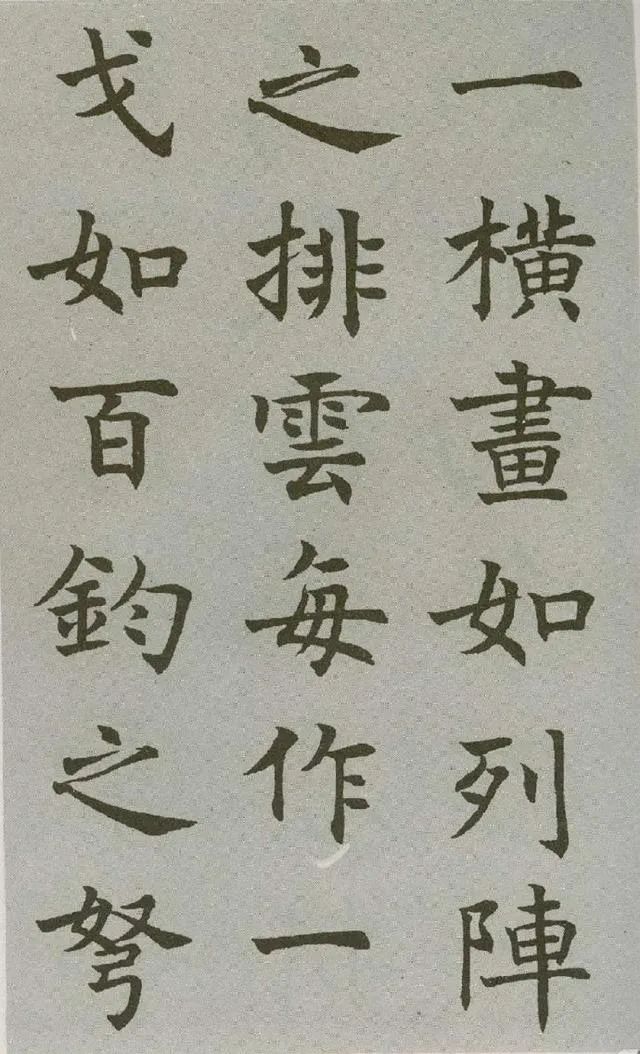 一橫畫如列陣
之排雲每作一
戈如百鈞之弩